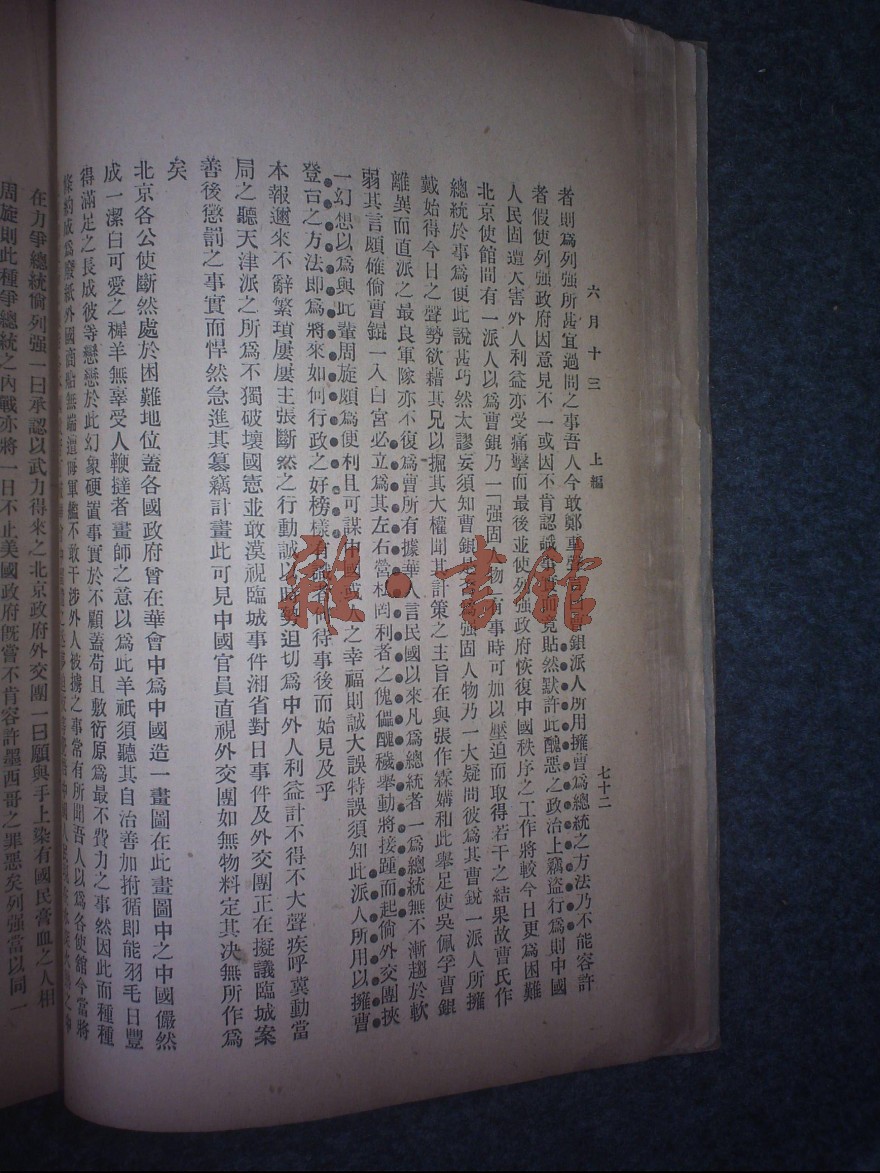 六月十三　上編　七十二
者則爲列强所甚宜過問之事吾人今敢鄭重 曹銀派人所用擁曹爲總統之方法乃不能容許
者假使列强政府因意見不一或因不肯認識事 而竟貼然默許此醜惡之政治上竊盜行爲則中國
人民固遭大害外人利益亦受痛擊而最後並使列强政府恢復中國秩序之工作將較今日更爲困難
北京使館間有一派人以爲曹銀乃一「强固人物」有事時可加以壓迫而取得若干之結果故曹氏作
總統於事爲便此說甚巧然太謬妄須知曹銀 强固人物乃一大疑問彼爲其曹銳一派人所擁
戴始得今日之聲勢欲藉其兄以握其大權聞其計策之主旨在與張作霖媾和此舉足使吳佩孚曹銀
離異而直派之最良軍隊亦不復爲曹所有據華人言民國以來凡爲總統者一爲總統無不漸趨於軟
弱其言頗確倘曹錕一入白宮必立爲其左右營私罔利者之傀儡醜穢舉動將接踵而起倘外交團挾
一幻想以爲與此輩周旋頗爲便利且可謀中國 人之幸福則誠大誤特誤須知此派人所用以擁曹
登台之方法即爲將來如何行政之好榜樣 何待事後而始見及乎
本報邇來不辭繁瑣屢屢主張斷然之行動誠以時勢迫切爲中外人利益計不得不大聲疾呼冀動當
局之聽天津派之所爲不獨破壞國憲並敢漠視臨城事件湘省對日事件及外交團正在擬議臨城案
善後懲罰之事實而悍然急進其篡竊計畫此可見中國官員直視外交團如無物料定其决無所作爲
矣
北京各公使斷然處於困難地位蓋各國政府曾在華會中爲中國造一畫圖在此畫圖中之中國儼然
成一潔白可愛之稺羊無辜受人鞭撻者畫師之意以爲此羊祇須聽其自治善加拊循即能羽毛日豐
得滿足之長成彼等戀戀於此幻象硬置事實於不顧蓋苟且敷衍原爲最不費力之事然因此而種種
條約成爲廢紙外國商船無端遭 海軍艦不敢干涉外人被擄之事常有所聞吾人以爲各使館今當將
在力爭總統倘列强一日承認以武力得來之北京政府外交團一日願與手上染有國民膏血之人相
周旋則此種爭總統之內戰亦將一日不止美國政府既嘗不肯容許墨西哥之罪惡矣列强當以同一
雜·書館